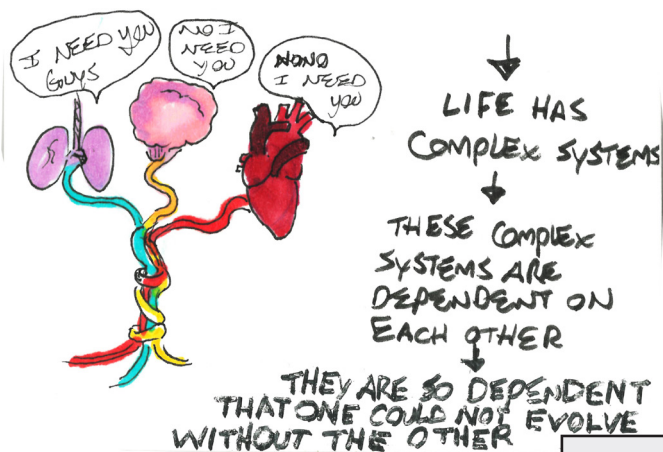 I NEED YOU
GUYS
NO I
NEED
YOU
NONO
I NEED
YOU
LIFE HAS
COMPLEX SYSTEMS
THESE COMPLEX
SYSTEMS ARE
DEPENDENT ON
EACH OTHER
THEY ARE SO DEPENDENT
THAT ONE COULD NOT EVOLVE
WITHOUT THE OTHER